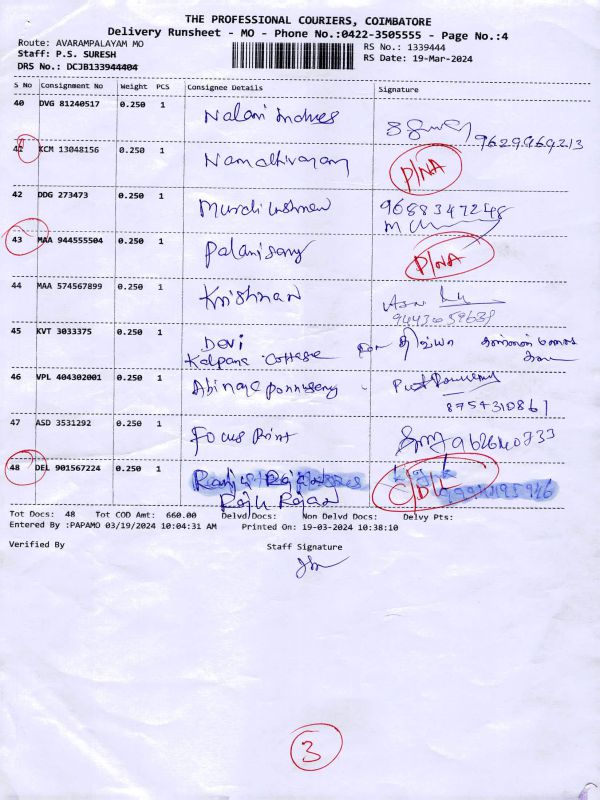 THE PROFESSIONAL COURIERS, COIMBATORE
Delivery Runsheet - MO - Phone No.:0422-3505555 - Page No.:4
Route: AVARAMPALAYAM MO
RS No.: 1339444
Staff: P.S. SURESH
RS Date: 19-Mar-2024
DRS No.: DCJB133944404
S No Consignment No Weight PCS Consignee Details Signature
40 DVG 81240517 0.250 1 Nalani Indres
9629969213
KCM 13048156 0.250 1 P/NA
42 DDG 273473 0.250 1 9688347248
43 MAA 944555504 0.250 1 Palanisamy P/NA
44 MAA 574567899 0.250 1 Krishnan
9443059639
45 KVT 3033375 0.250 1 Devi
Kalpana Cottage
46 VPL 404302001 0.250 1 Abinaya Ponnusamy
8754310861
47 ASD 3531292 0.250 1 Focus Print
48 DEL 901567224 0.250 1 C/D
Raju Rajan
Tot Docs: 48 Tot COD Amt: 660.00 Delvd Docs: Non Delvd Docs: Delvy Pts:
Entered By :PAPAMO 03/19/2024 10:04:31 AM Printed On: 19-03-2024 10:38:10
Verified By Staff Signature
3